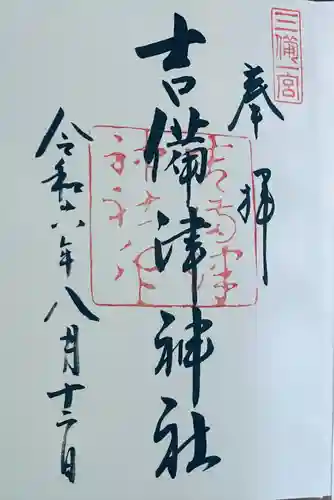 三備一宮
奉拝
吉備津神社
令和六年八月十二日
吉備津神社